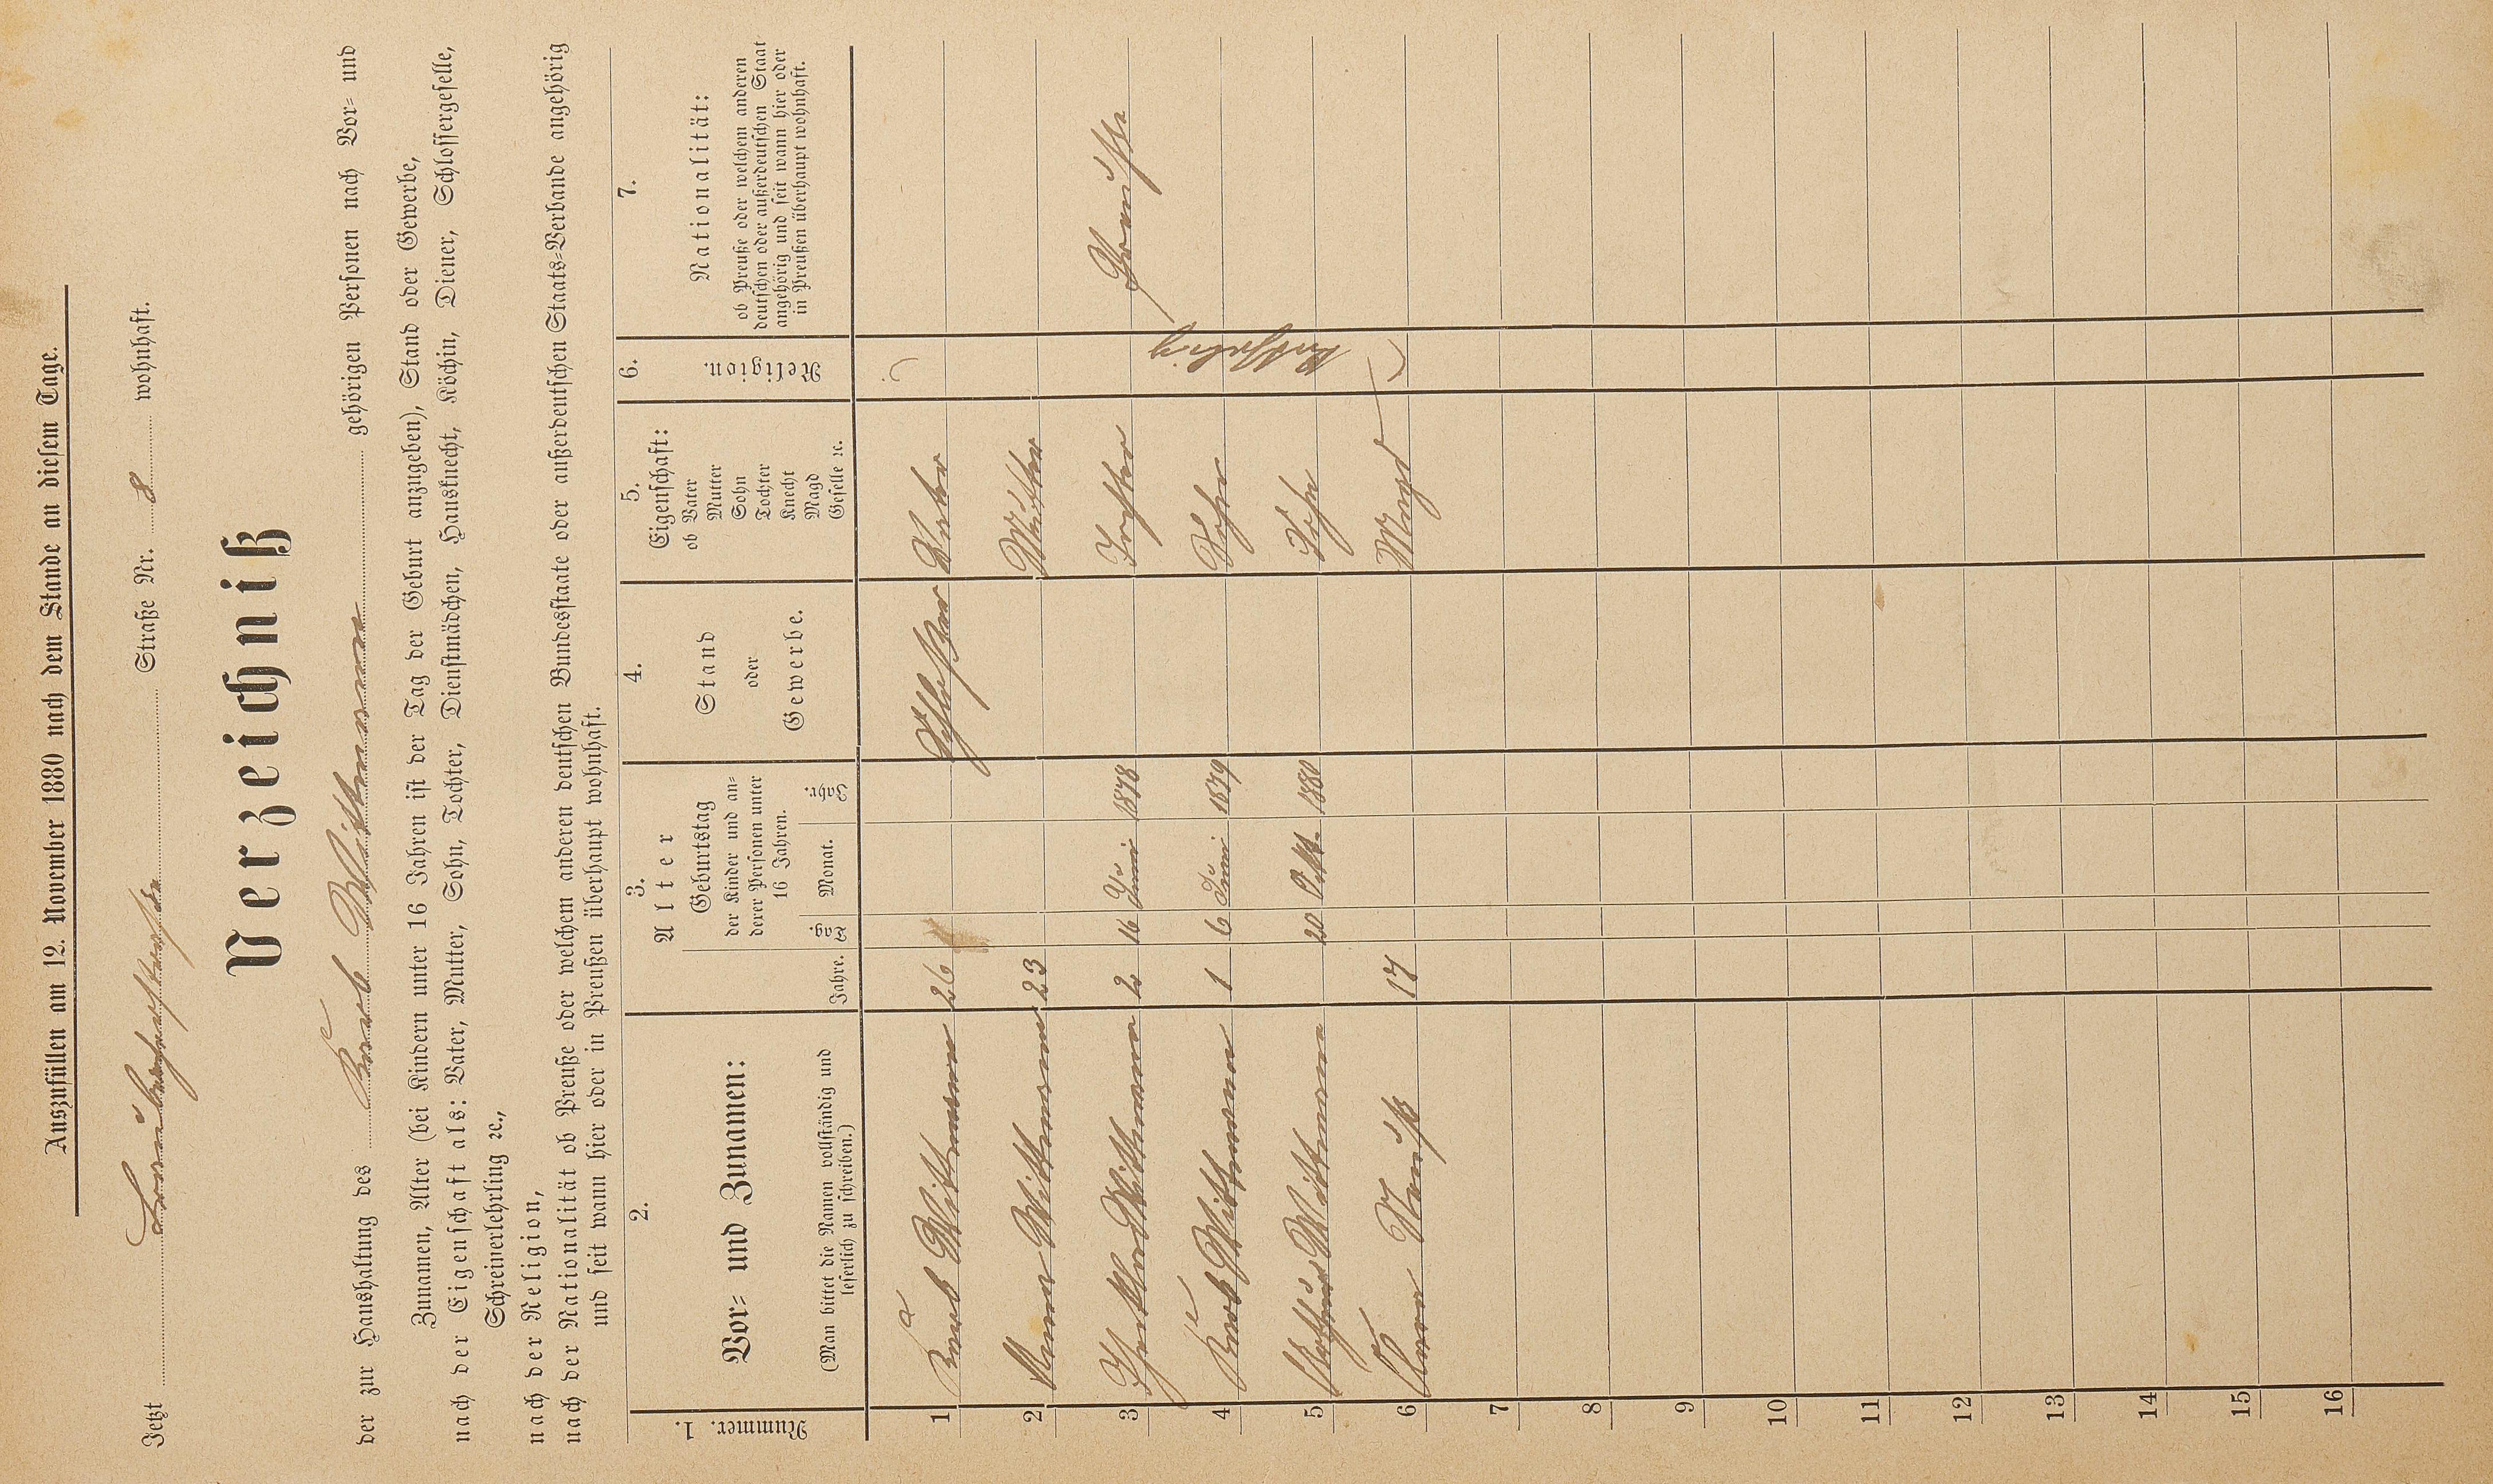 Auszufüllen am 12. November 1880 nach dem Stande an diesem Tage.
Jetzt Straße Nr. 8 wohnhaft.
Verzeichniß
der zur Haushaltung des Wittmann gehörigen Personen nach Vor- und
Zunamen, Alter (bei Kindern unter 16 Jahren ist der Tag der Geburt anzugeben), Stand oder Gewerbe,
nach der Eigenschaft als: Vater, Mutter, Sohn, Tochter, Dienstmädchen, Hausknecht, Köchin, Diener, Schlossergeselle,
Schreinerlehrling ꝛc.,
nach der Religion,
nach der Nationalität ob Preuße oder welchem anderen deutschen Bundesstaate oder außerdeutschen Staats-Verbande angehörig
und seit wann hier oder in Preußen überhaupt wohnhaft.
1.
Nummer.
2.
Vor- und Zunamen:
(Man bittet die Namen vollständig und
leserlich zu schreiben.)
3.
Alter
Jahre.
Geburtstag
der Kinder und an-
derer Personen unter
16 Jahren.
Tag. Monat. Jahr.
4.
Stand
oder
Gewerbe.
5.
Eigenschaft:
ob Vater
Mutter
Sohn
Tochter
Knecht
Magd
Geselle ꝛc.
6.
Religion.
7.
Nationalität:
ob Preuße oder welchem anderen
deutschen oder außerdeutschen Staat
angehörig und seit wann hier oder
in Preußen überhaupt wohnhaft.
1 Wittmann 26 Schlosser Vater
2 Anna Wittmann 23 Mutter
3 Wittmann 2 16 Juni 1878 Tochter Preusse
4 Wittmann 1 6 Juni 1879 Sohn
5 Mathias Wittmann 20 Okt. 1880 Sohn
6 17 Magd
Katholisch
7
8
9
10
11
12
13
14
15
16